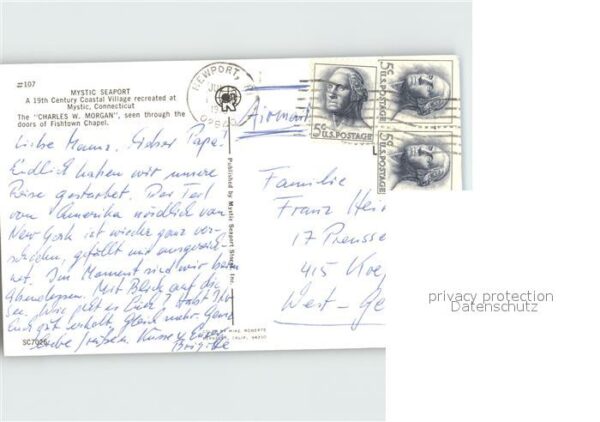 #107
MYSTIC SEAPORT
A 19th Century Coastal Village recreated at
Mystic, Connecticut
The "CHARLES W. MORGAN", seen through the
doors of Fishtown Chapel.
NEWPORT,
Airmail
5c
U.S. POSTAGE
5c
U.S. POSTAGE
5c
U.S. POSTAGE
Liebe Mama, lieber Papa!
Endlich haben wir unsere
Reise gestartet. Der Teil
von Amerika nördlich von
New York ist wieder ganz ver-
schieden, gefällt mir ausgezeich-
net. Im Moment sind wir beim
Abendessen. Mit Blick auf die
See. Wie geht es Euch? Habt Ihr
Euch gut erholt,
Liebe Grüße Küsse
Brigitte
Published by Mystic Seaport Stores, Inc.
Familie
Franz
17 Preusse
415
West-Ge
MIKE ROBERTS
CALIF. 94710
privacy protection
Datenschutz